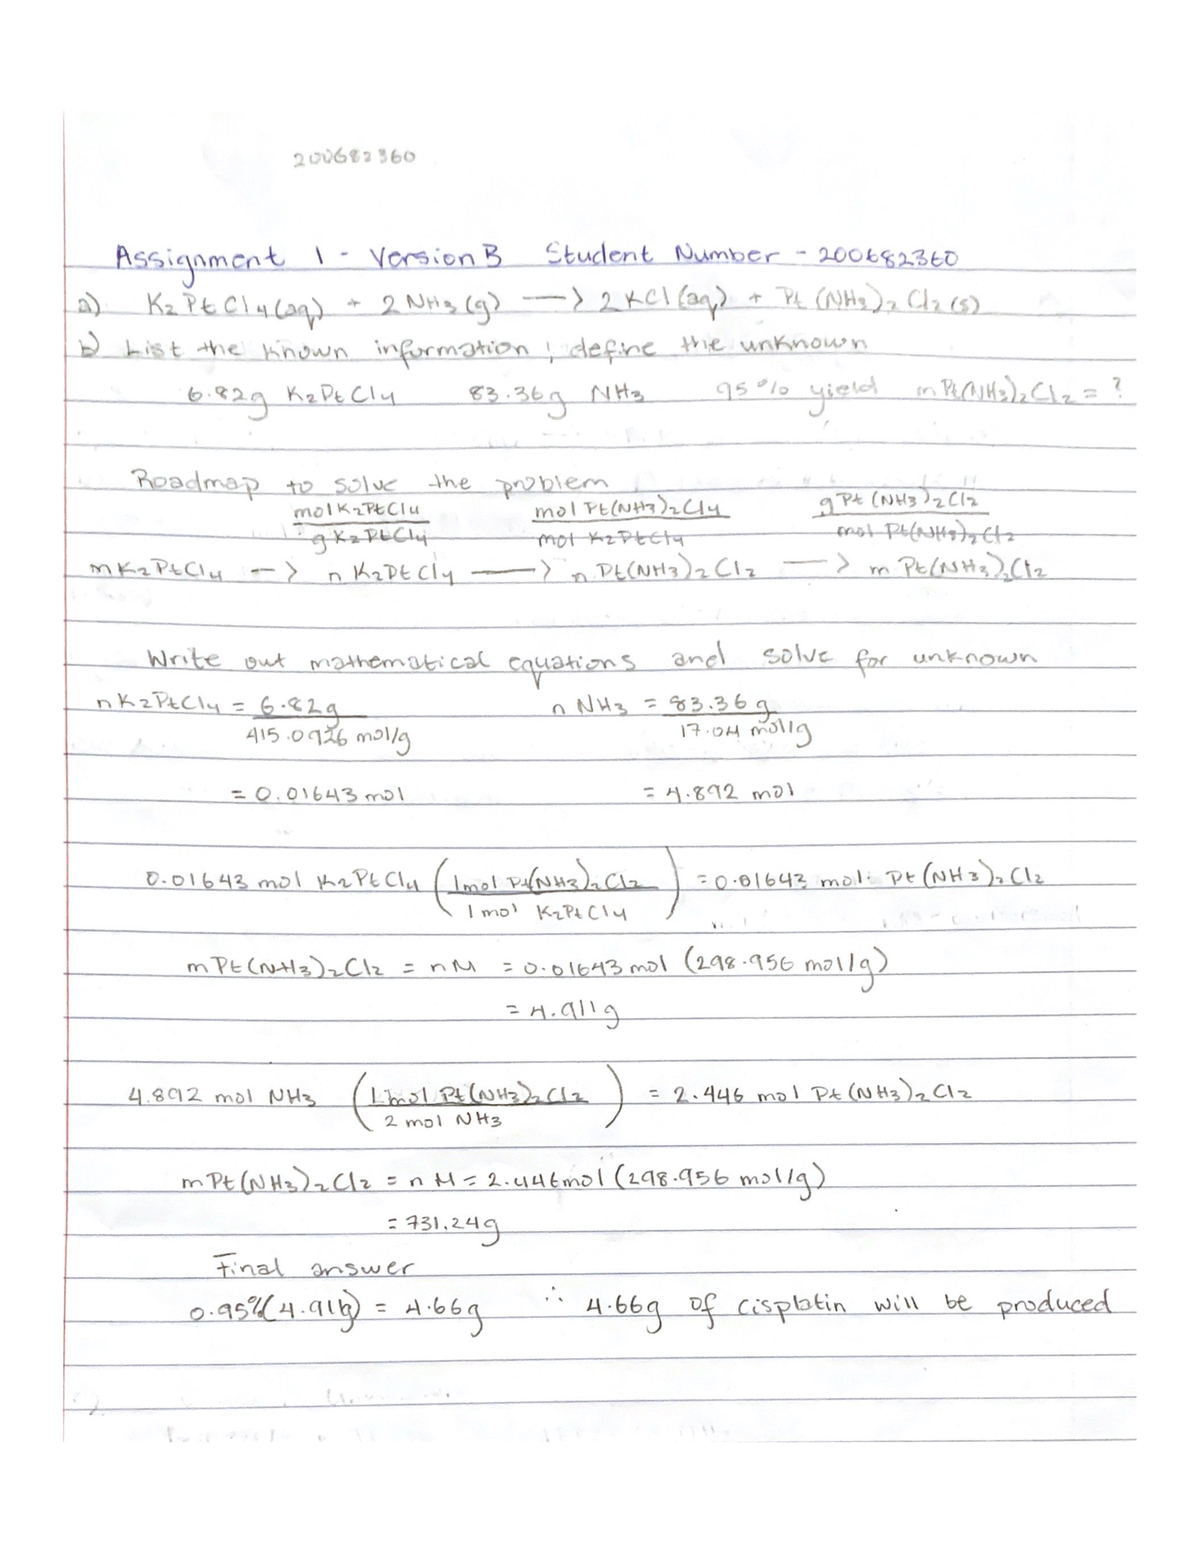 200682360
Assignment 1 - Version B Student Number - 200682360
a) K2PtCl4(aq) + 2NH3(g) —> 2KCl(aq) + Pt(NH3)2Cl2(s)
b) List the known information, define the unknown
6.82g K2PtCl4 83.36g NH3 95% yield mPt(NH3)2Cl2 = ?
Roadmap to solve the problem
molK2PtCl4 mol Pt(NH3)2Cl4 gPt(NH3)2Cl2
gK2PtCl4 mol K2PtCl4 mol Pt(NH3)2Cl2
mK2PtCl4 —> n K2PtCl4 —> n Pt(NH3)2Cl2 —> m Pt(NH3)2Cl2
Write out mathematical equations and solve for unknown
nK2PtCl4 = 6.82g n NH3 = 83.36g
415.0926 mol/g 17.04 mol/g
= 0.01643 mol = 4.892 mol
0.01643 mol K2PtCl4 (1mol Pt(NH3)2Cl2) = 0.01643 mol Pt(NH3)2Cl2
1 mol K2PtCl4
mPt(NH3)2Cl2 = nM = 0.01643 mol (298.956 mol/g)
= 4.911g
4.892 mol NH3 (1mol Pt(NH3)2Cl2) = 2.446 mol Pt(NH3)2Cl2
2 mol NH3
mPt(NH3)2Cl2 = nM = 2.446mol (298.956 mol/g)
= 731.24g
Final answer
0.95%(4.91g) = 4.66g ∴ 4.66g of cisplatin will be produced